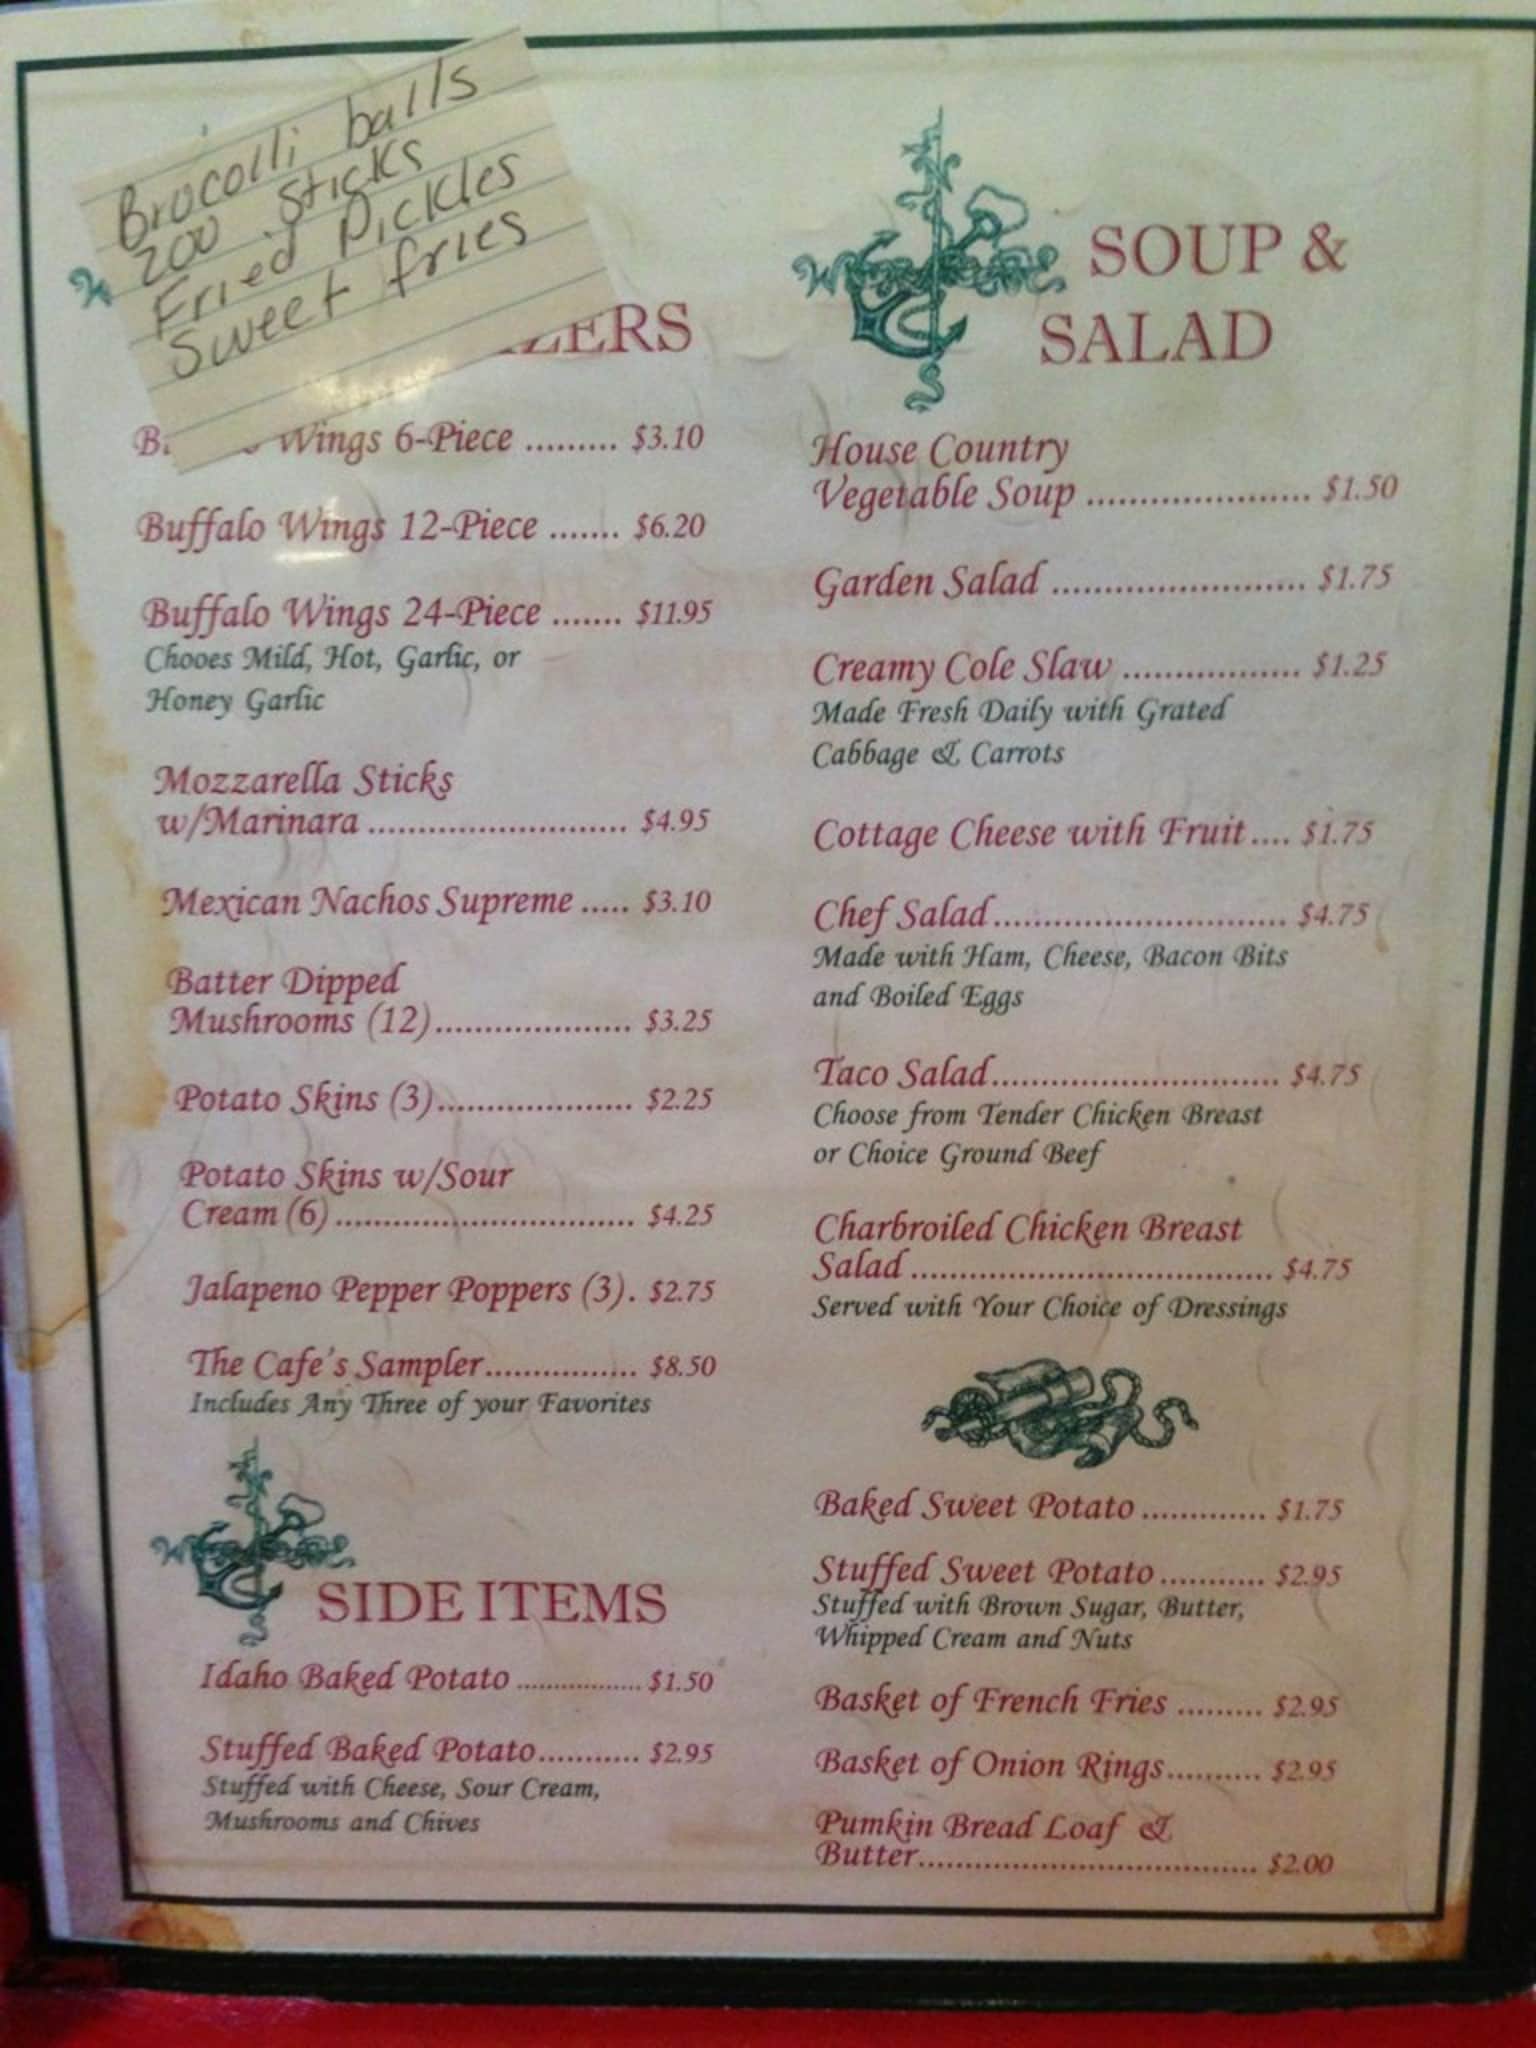 Brocolli balls
zoo sticks
Fried Pickles
Sweet fries
Wings 6-Piece ......... $3.10
Buffalo Wings 12-Piece ....... $6.20
Buffalo Wings 24-Piece ....... $11.95
Chooes Mild, Hot, Garlic, or
Honey Garlic
Mozzarella Sticks
w/Marinara ........................... $4.95
Mexican Nachos Supreme ..... $3.10
Batter Dipped
Mushrooms (12)..................... $3.25
Potato Skins (3)..................... $2.25
Potato Skins w/Sour
Cream (6) ............................... $4.25
Jalapeno Pepper Poppers (3). $2.75
The Cafe's Sampler................ $8.50
Includes Any Three of your Favorites
SIDE ITEMS
Idaho Baked Potato .................. $1.50
Stuffed Baked Potato........... $2.95
Stuffed with Cheese, Sour Cream,
Mushrooms and Chives
SOUP &
SALAD
House Country
Vegetable Soup ...................... $1.50
Garden Salad ......................... $1.75
Creamy Cole Slaw ................. $1.25
Made Fresh Daily with Grated
Cabbage & Carrots
Cottage Cheese with Fruit .... $1.75
Chef Salad............................. $4.75
Made with Ham, Cheese, Bacon Bits
and Boiled Eggs
Taco Salad............................. $4.75
Choose from Tender Chicken Breast
or Choice Ground Beef
Charbroiled Chicken Breast
Salad ..................................... $4.75
Served with Your Choice of Dressings
Baked Sweet Potato ............. $1.75
Stuffed Sweet Potato ........... $2.95
Stuffed with Brown Sugar, Butter,
Whipped Cream and Nuts
Basket of French Fries ......... $2.95
Basket of Onion Rings.......... $2.95
Pumkin Bread Loaf &
Butter.................................... $2.00